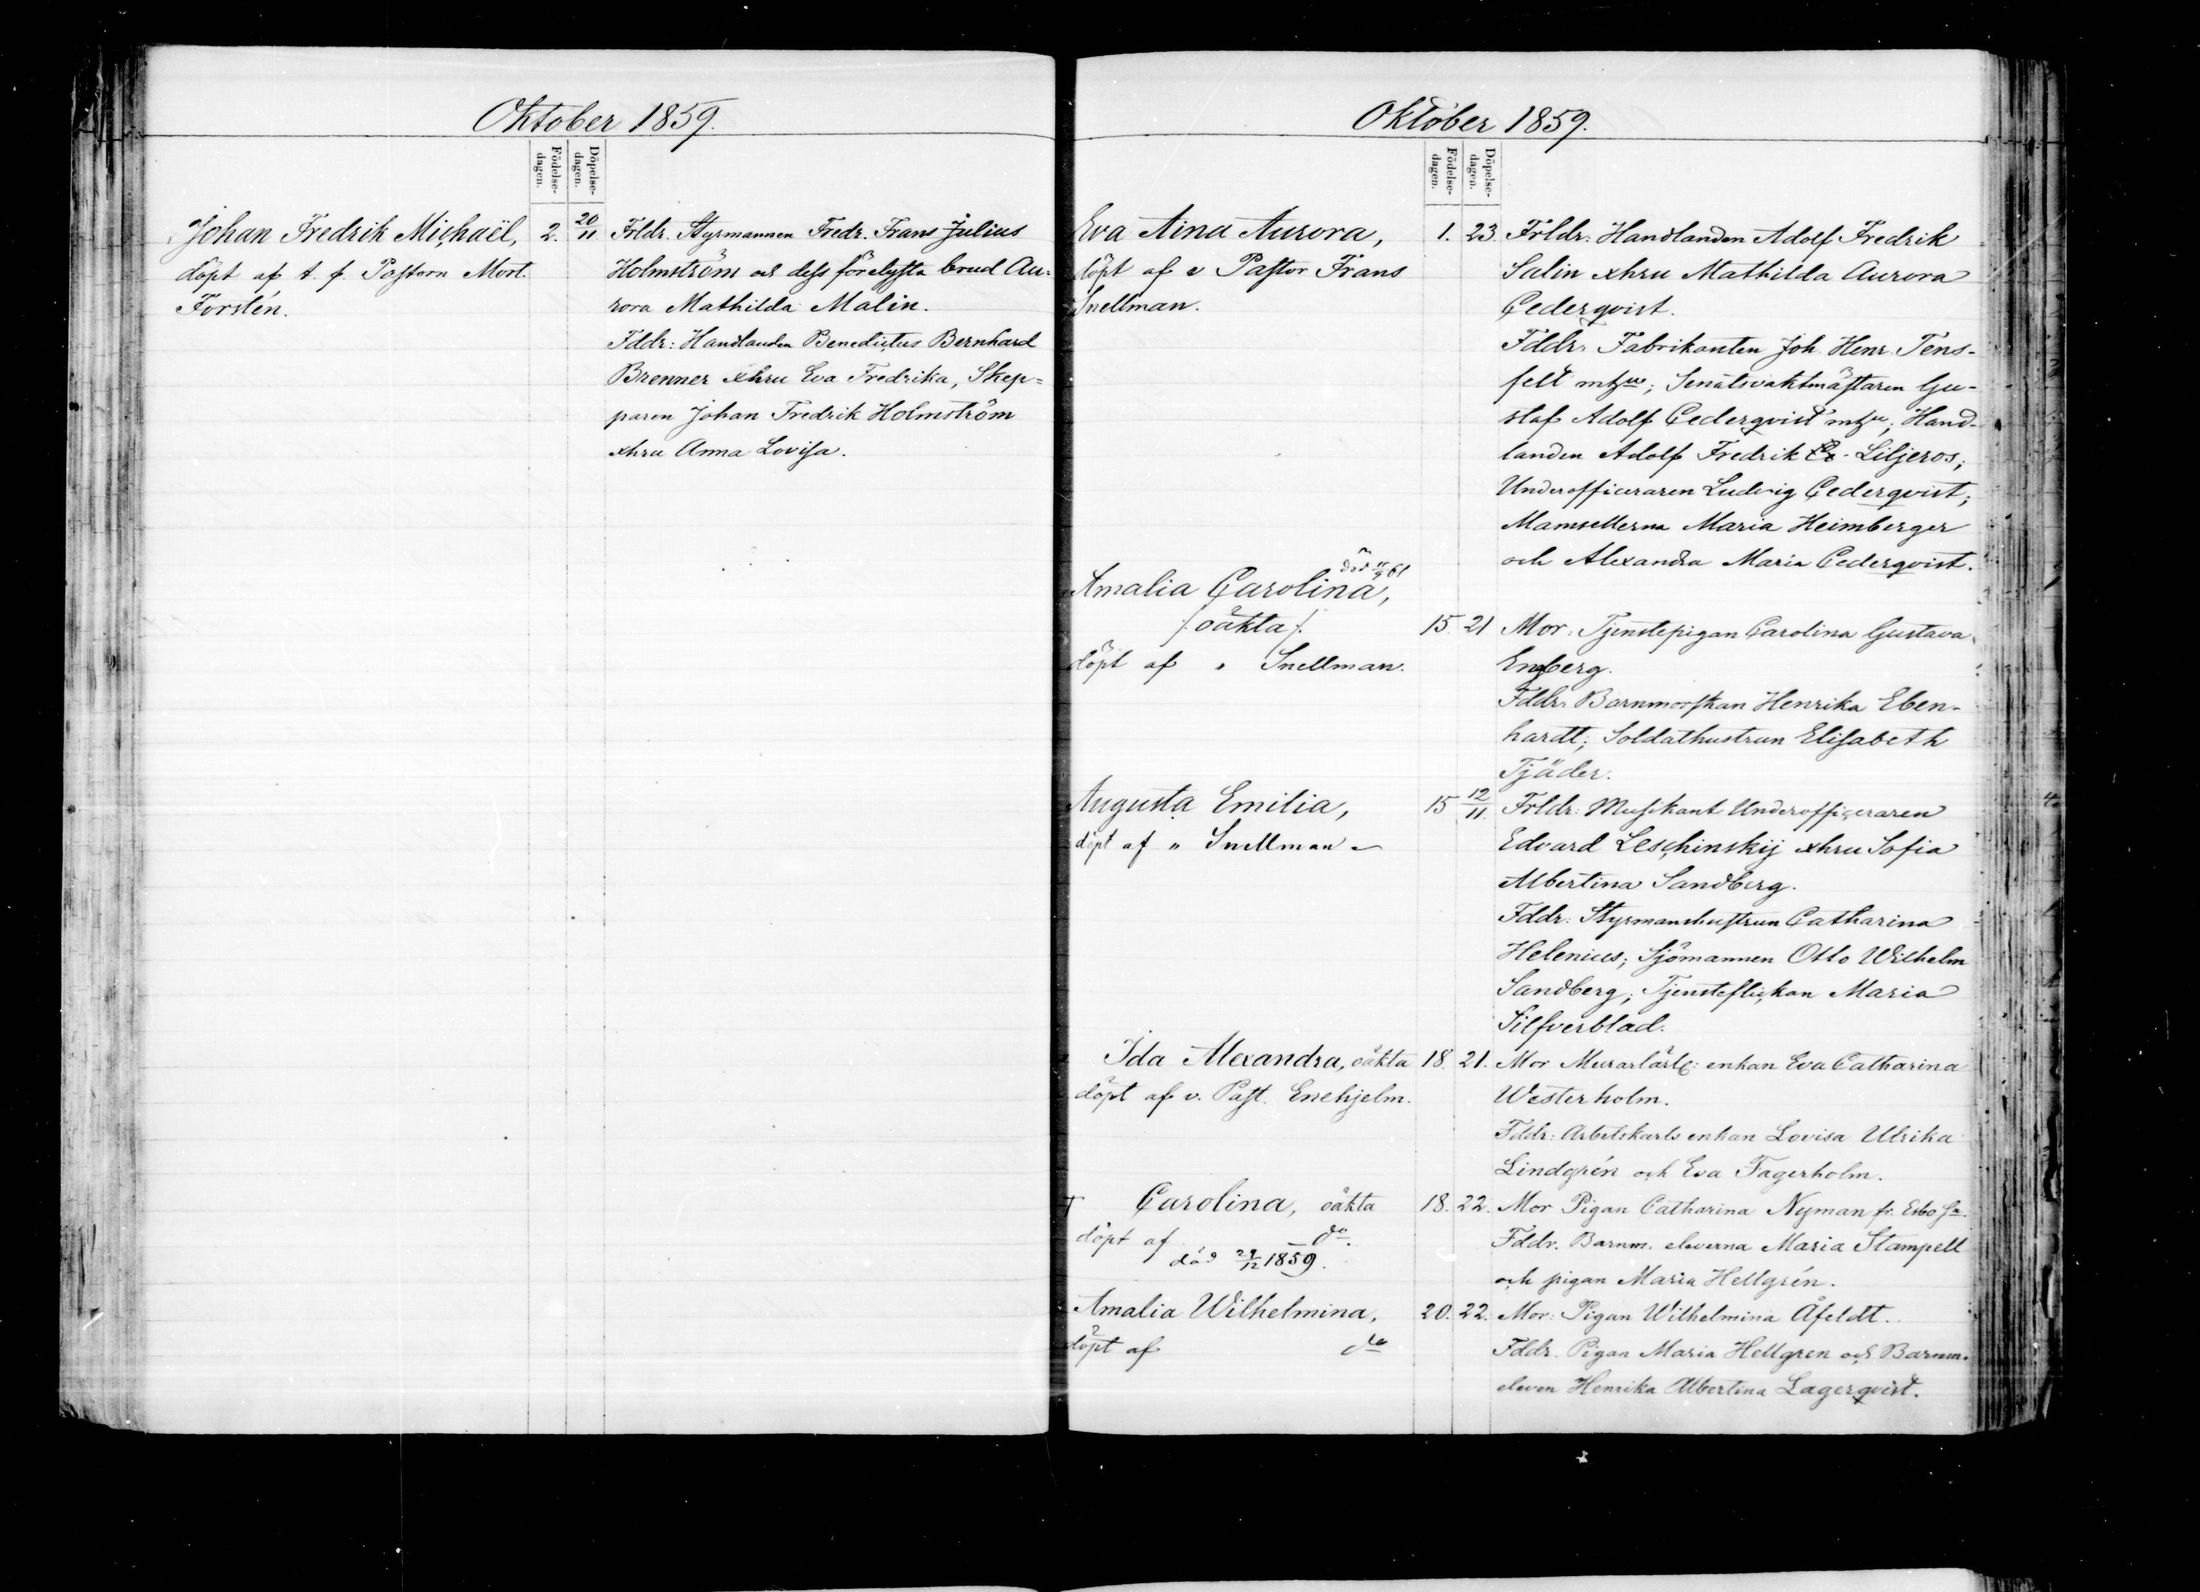 Oktober 1859.
Födelse-
dagen.
Döpelse-
dagen.
Johan Fredrik Michaël,
döpt af t. f. Pastorn Mort.
Forstén.
2. 20/11
Frldr. Styrmannen Fredr. Frans Julius
Holmström och dess förelysta brud Au-
rora Mathilda Malin.
Fddr: Handlanden Benedictus Bernhard
Brenner xhru Eva Fredrika, Skep-
paren Johan Fredrik Holmström
xhru Anna Lovisa.
Oktober 1859.
Födelse-
dagen.
Döpelse-
dagen.
Eva Aina Aurora,
döpt af v Pastor Frans
Snellman.
1. 23.
Frldr: Handlanden Adolf Fredrik
Salin xhru Mathilda Aurora
Cederqvist.
Fddr: Fabrikanten Joh. Henr. Tens-
felt; Senatsvaktmästaren Gu-
staf Adolf Cederqvist; Hand-
landen Adolf Fredrik Liljeros;
Underofficeraren Ludvig Cederqvist;
Mamsellerna Maria Heimberger
och Alexandra Maria Cederqvist.
död 11/9 61
Amalia Carolina,
/: oäkta :/
döpt af " Snellman.
15. 21
Mor: Tjenstepigan Carolina Gustava
Engberg.
Fddr: Barnmorskan Henrika Eben-
hardt; Soldathustrun Elisabeth
Tjäder.
Augusta Emilia,
döpt af " Snellman
15 12/11.
Frldr: Musikant Underofficeraren
Edvard Leschinskij xhru Sofia
Albertina Sandberg.
Fddr: Styrmanshustrun Catharina
Helenius; Sjömannen Otto Wilhelm
Sandberg; Tjensteflickan Maria
Silfverblad.
Ida Alexandra, oäkta
döpt af v. Past. Enehjelm.
18. 21.
Mor Murarlärl: enkan Eva Catharina
Westerholm.
Fddr: Arbetskarls enkan Lovisa Ulrika
Lindgrén och Eva Fagerholm.
† Carolina, oäkta
döpt af do.
död 29/12 1859.
18. 22.
Mor Pigan Catharina Nyman fr. Esbo sn.
Fddr. Barnm. eleverna Maria Stampell
och pigan Maria Hellgrén.
Amalia Wilhelmina,
döpt af do
20. 22.
Mor: Pigan Wilhelmina Åfeldt.
Fddr. Pigan Maria Hellgren och Barnm.
eleven Henrika Albertina Lagerqvist.